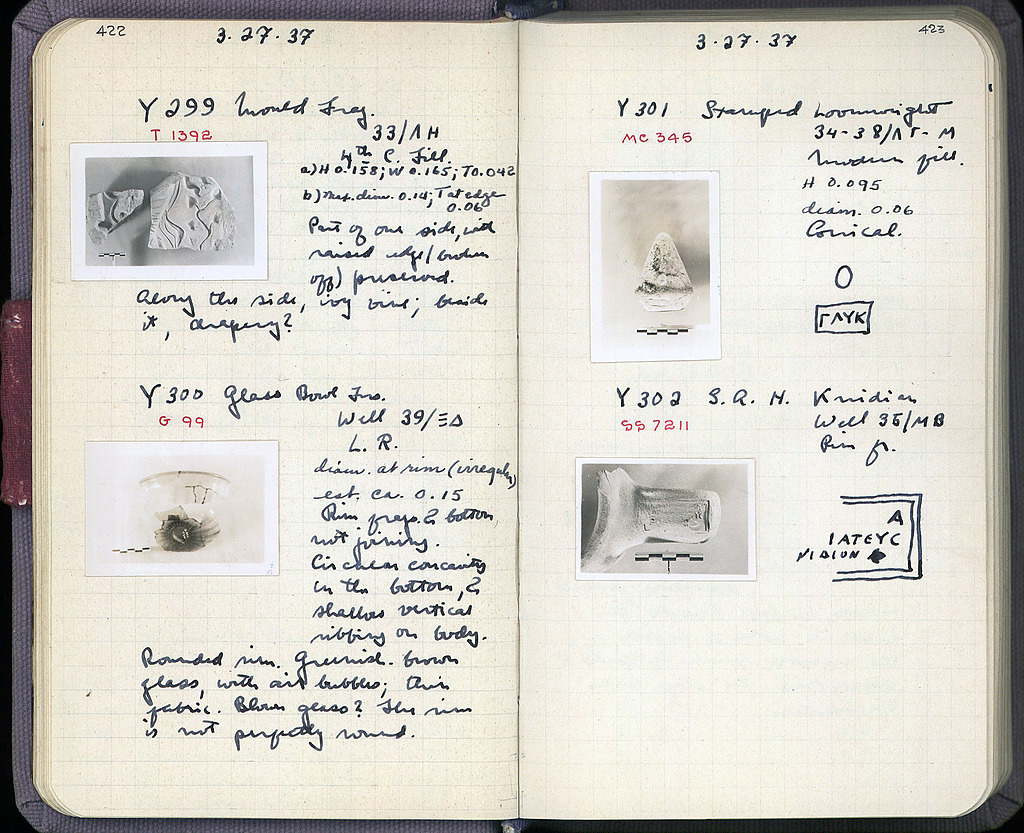 422
3·27·37
Y 299 Mould Frag.
T 1392
33/ΛH
4th C. Fill.
a) H 0.158; W 0.165; T 0.042
b) Max. diam. 0.14; T at edge
0.06
Part of one side, with
raised edge (broken
off) preserved.
Along the side, ivy vine; beside
it, drapery?
Y 300 Glass Bowl Frs.
G 99
Well 39/ΞΔ
L. R.
diam. at rim (irregular)
est. ca. 0.15
Rim frags. & bottom
not joining.
Circular concavity
in the bottom, &
shallow vertical
ribbing on body.
Rounded rim. Greenish-brown
glass, with air bubbles; thin
fabric. Blown glass? The rim
is not perfectly round.
423
3·27·37
Y 301 Stamped Loomweight
MC 345
34-38/ΛΓ-M
Modern fill.
H 0.095
diam. 0.06
Conical.
O
ΓΛΥΚ
Y 302 S. A. H. Knidian
SS 7211
Well 35/MB
Rim fr.
A
IATEYC
NIDION